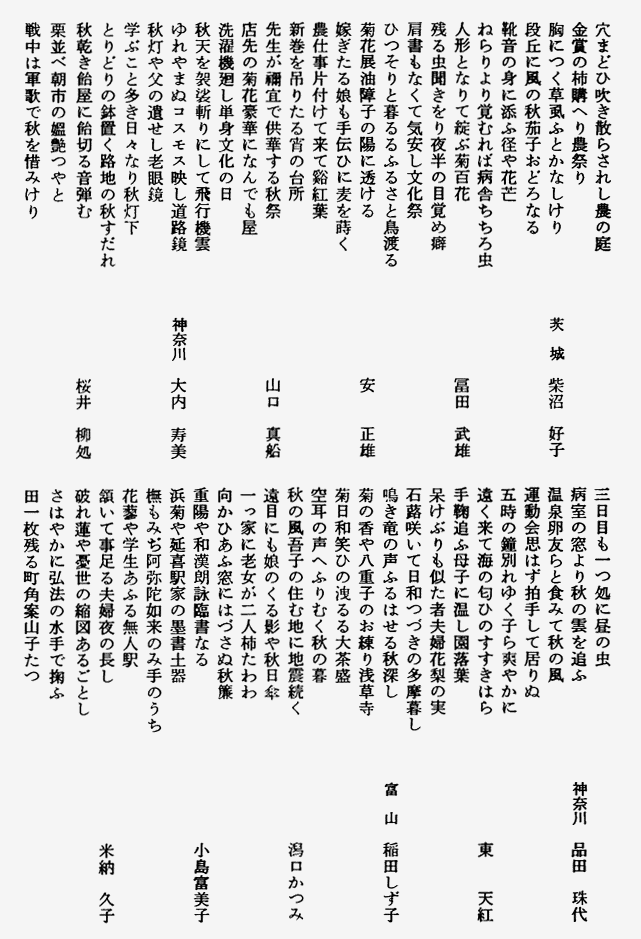 穴まどひ吹き散らされし農の庭
金賞の柿購へり農祭り
胸につく草虱ふとかなしけり
茨城 柴沼 好子
段丘に風の秋茄子おどろなる
靴音の身に添ふ径や花芒
ねらりより覚むれば病舎ちちろ虫
人形となりて綻ぶ菊百花
冨田 武雄
残る虫聞きをり夜半の目覚め癖
肩書もなくて気安し文化祭
ひつそりと暮るるふるさと鳥渡る
菊花展油障子の陽に透ける
安 正雄
嫁ぎたる娘も手伝ひに麦を蒔く
農仕事片付けて来て谿紅葉
新巻を吊りたる宵の台所
先生が禰宜で供華する秋祭
山口 真船
店先の菊花豪華になんでも屋
洗濯機廻し単身文化の日
秋天を袈裟斬りにして飛行機雲
ゆれやまぬコスモス映し道路鏡
神奈川 大内 寿美
秋灯や父の遺せし老眼鏡
学ぶこと多き日々なり秋灯下
とりどりの鉢置く路地の秋すだれ
秋乾き飴屋に飴切る音弾む
桜井 柳処
栗並べ朝市の媼艶つやと
戦中は軍歌で秋を惜みけり
三日目も一つ処に昼の虫
病室の窓より秋の雲を追ふ
神奈川 品田 珠代
温泉卵友らと食みて秋の風
運動会思はず拍手して居りぬ
五時の鐘別れゆく子ら爽やかに
遠く来て海の匂ひのすすきはら
東 天紅
手鞠追ふ母子に温し園落葉
呆けぶりも似た者夫婦花梨の実
石蕗咲いて日和つづきの多摩暮し
鳴き竜の声ふるはせる秋深し
富山 稲田しず子
菊の香や八重子のお練り浅草寺
菊日和笑ひの洩るる大茶盛
空耳の声へふりむく秋の暮
秋の風吾子の住む地に地震続く
潟口かつみ
遠目にも娘のくる影や秋日傘
一っ家に老女が二人柿たわわ
向かひあふ窓にはづさぬ秋簾
重陽や和漢朗詠臨書なる
小島富美子
浜菊や延喜駅家の墨書土器
撫もみぢ阿弥陀如来のみ手のうち
花蓼や学生あふる無人駅
頷いて事足る夫婦夜の長し
米納 久子
破れ蓮や憂世の縮図あるごとし
さはやかに弘法の水手で掬ふ
田一枚残る町角案山子たつ